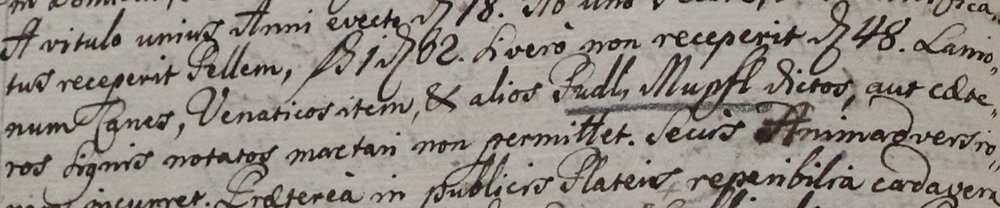 A vitulo unius Anni evecto ₰ 18.
tus receperit Pellem, ß 1 ₰ 62. si verò non receperit ₰ 48. Lanio,
num Canes, Venaticos item, & alios Pudl, Mupfl dictos, aut cæte,
ros signis notatos mactari non permittet. secus Animadversio,
incurret. Prætereà in publicis Plateis reperibilia cadavera